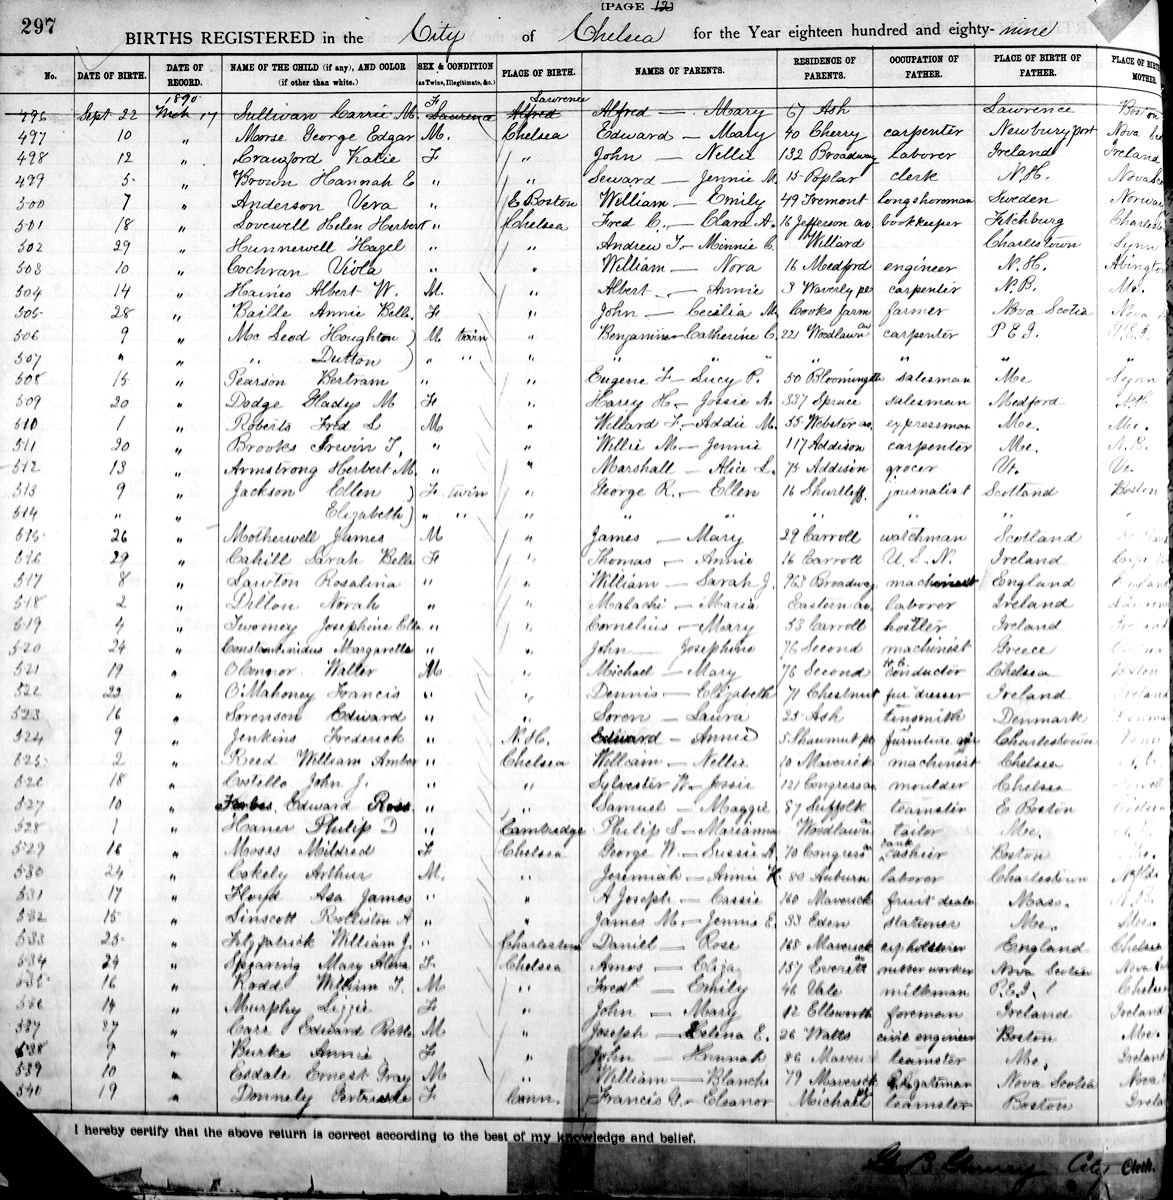 [PAGE 12]
297
BIRTHS REGISTERED in the City of Chelsea for the Year eighteen hundred and eighty-nine
No. DATE OF BIRTH. DATE OF RECORD. NAME OF THE CHILD (if any), AND COLOR (if other than white.) SEX & CONDITION (as Twins, Illegitimate, &c.) PLACE OF BIRTH. NAMES OF PARENTS. RESIDENCE OF PARENTS. OCCUPATION OF FATHER. PLACE OF BIRTH OF FATHER. PLACE OF BIRTH MOTHER.
1890 F Lawrence
496 Sept 22 Mch 17 Sullivan Carrie M. Lawrence Alfred Alfred — Mary 67 Ash Lawrence Boston
497 10 " Morse George Edgar M. Chelsea Edward — Mary 40 Cherry carpenter Newburyport Nova
498 12 " Crawford Katie F " John — Nellie 132 Broadway laborer Ireland Ireland
499 5 " Brown Hannah E " " Seward — Jennie M. 15 Poplar clerk N.H. Nova
500 7 " Anderson Vera " E Boston William — Emily 49 Tremont longshoreman Sweden Norway
501 18 " Lovewell Helen Herbert " Chelsea Fred C. — Clara A. 16 Jefferson av. bookkeeper Fitchburg Charles
502 29 " Hunnewell Hazel " " Andrew J — Minnie C. Willard Charlestown Lynn
503 10 " Cochran Viola " " William — Nora 16 Medford engineer N.H. Abington
504 14 " Haines Albert W. M. " Albert — Annie 3 Waverly pl carpenter N.B. Me.
505 28 " Baille Annie Bell. F " John — Cecilia M. Cooks farm farmer Nova Scotia Nova
506 9 " Mc Leod Houghton ) M twin " Benjamin — Catherine C. 221 Woodlawn av carpenter P E I. P.E.I.
507 " " " Dutton ) " " " " " " " " "
508 15 " Pearson Bertram " " Eugene F — Lucy P. 50 Bloomingdle salesman Me Lynn
509 20 " Dodge Gladys M F " Harry H — Jossie A. 337 Spruce salesman Medford N.H.
510 1 " Roberts Fred L M " Willard F. — Addie M. 55 Webster av. expressman Me. Me.
511 20 " Brooks Irwin T. " " Willie M. — Jennie 117 Addison carpenter Me. N.B.
512 13 " Armstrong Herbert M. " " Marshall — Alice L. 75 Addison grocer Vt. Vt.
513 9 " Jackson Ellen ) F twin " George R. — Ellen 16 Shurtleff. journalist Scotland Boston
514 " " Elizabeth ) " " " " " " " "
515 26 " Motherwell James M " James — Mary 29 Carroll watchman Scotland
516 29 " Cahill Sarah Belle F " Thomas — Annie 16 Carroll U.S.N. Ireland
517 8 " Lawton Rosalina " " William — Sarah J. 963 Broadway machinist England
518 2 " Dillon Norah " " Malachi — Maria Eastern av. laborer Ireland
519 4 " Twomey Josephine Ella " " Cornelius — Mary 53 Carroll hostler Ireland
520 24 " Constantinidus Margarette " " John — Josephine 76 Second machinist Greece
521 19 " O'Connor Walter M. " Michael — Mary 76 Second conductor Chelsea Boston
522 22 " O'Mahoney Francis " " Dennis — Elizabeth 71 Chestnut fur dresser Ireland Ireland
523 16 " Sorenson Edward " " Soren — Laura 25 Ash tinsmith Denmark
524 9 " Jenkins Frederick " N.H. Edward — Annie 5 Shawmut pl furniture Charlestown
525 2 " Reed William Amber " Chelsea William — Nellie 10 Maverick machinist Chelsea
526 18 " Costello John J. " " Sylvester W — Jossie 121 Congress av moulder Chelsea
527 10 " Forbes Edward Ross " " Samuel — Maggie 87 Suffolk teamster E Boston
528 1 " Haner Philip D " Cambridge Philip S — Marianna Woodlawn av tailor Me.
529 16 " Moses Mildred F Chelsea George W — Sussie A. 70 Congress av bank cashier Boston Me.
530 24 " Cakely Arthur M. " Jeremiah — Annie K 80 Auburn laborer Charlestown
531 17 " Floyd Asa James " " A Joseph — Cassie 160 Maverick fruit dealer Mass. N.B.
532 15 " Linscott Rolliston A " " James M. — Jennie E. 33 Eden stationer Me. Me.
533 25 " Fitzpatrick William J. " Charlestown Daniel — Rose 168 Maverick upholsterer England Chelsea
534 24 " Spearing Mary Alena F Chelsea Amos — Eliza 157 Everett av rubber worker Nova Scotia Nova
535 16 " Rodd William T. M " Fredk — Emily 46 Vale milkman P.E.I. Chelsea
536 14 " Murphy Lizzie F " John — Mary 12 Ellsworth foreman Ireland Ireland
537 27 " Carr Edward M " Joseph — Selina E. 26 Watts civil engineer Boston Me.
538 9 " Burke Annie F " John — Hannah 86 Maverick teamster Me. Ireland
539 10 " Esdale Ernest Gray M " William — Blanche 79 Maverick gateman Nova Scotia Nova
540 19 " Donnely Gertrude F Conn. Francis G. — Eleanor Michael teamster Boston Irela
I hereby certify that the above return is correct according to the best of my knowledge and belief.
City Clerk.